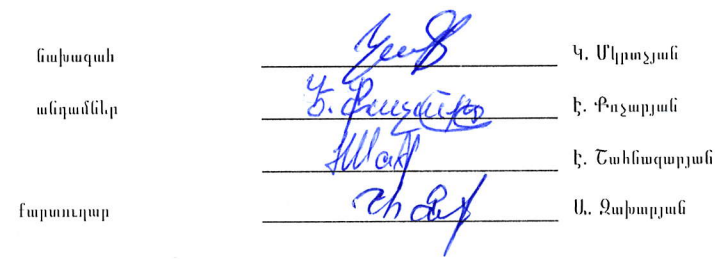 նախագահ Կ. Մկրտչյան
անդամներ Է. Քոչարյան
Է. Շահնազարյան
քարտուղար Ա. Զախարյան